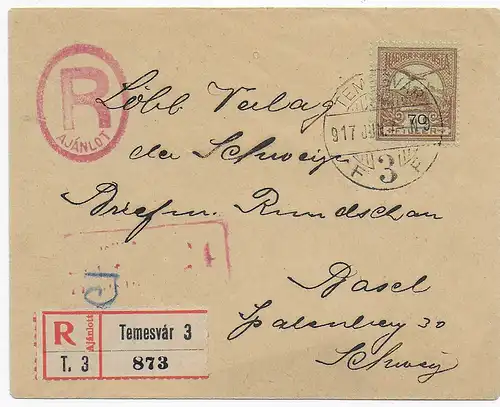 R
AJÁNLOT
MAGYAR KIR. POSTA
70
TEMESVÁR
917
3
Löbl Verlag
der Schweizer
Briefm. Rundschau
Basel
Spalenberg 30
Schweiz
R
Ajánlott
Temesvár 3
T. 3
873